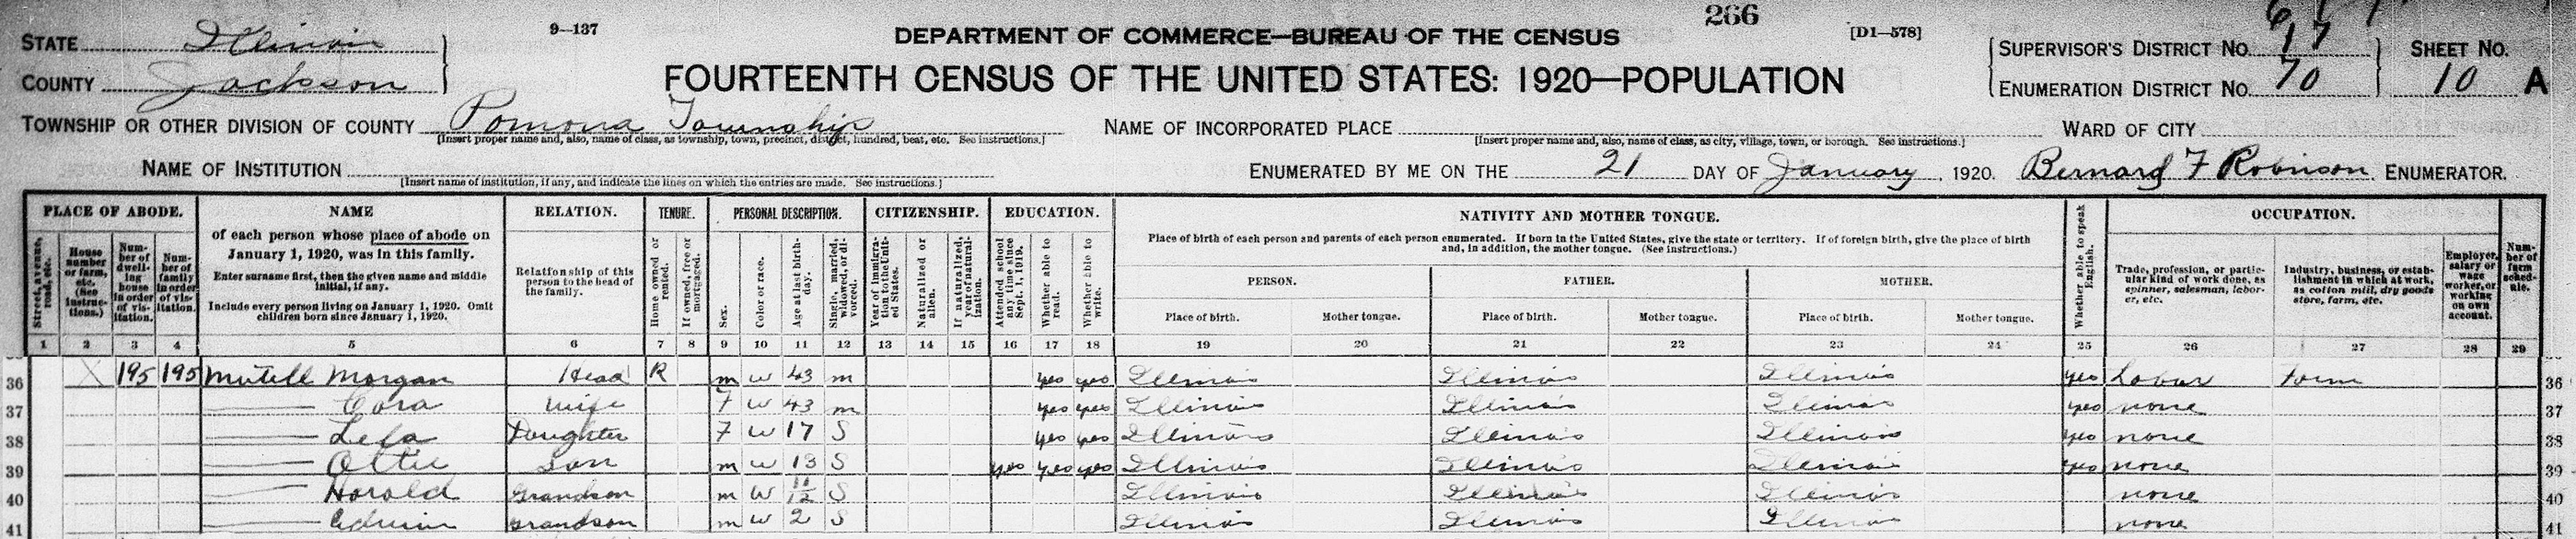 266
STATE Illinois
COUNTY Jackson
9—137
DEPARTMENT OF COMMERCE—BUREAU OF THE CENSUS
[D1—578]
FOURTEENTH CENSUS OF THE UNITED STATES: 1920—POPULATION
SUPERVISOR'S DISTRICT NO.
ENUMERATION DISTRICT NO. 70
SHEET NO.
10 A
TOWNSHIP OR OTHER DIVISION OF COUNTY Pomona Township
[Insert proper name and, also, name of class, as township, town, precinct, district, hundred, beat, etc. See instructions.]
NAME OF INCORPORATED PLACE
[Insert proper name and, also, name of class, as city, village, town, or borough. See instructions.]
WARD OF CITY
NAME OF INSTITUTION
[Insert name of institution, if any, and indicate the lines on which the entries are made. See instructions.]
ENUMERATED BY ME ON THE 21 DAY OF January, 1920. Bernard F Robinson, ENUMERATOR.
PLACE OF ABODE.
Street, avenue, road, etc.
House number or farm, etc. (See instructions.)
Number of dwelling house in order of visitation.
Number of family in order of visitation.
NAME
of each person whose place of abode on
January 1, 1920, was in this family.
Enter surname first, then the given name and middle
initial, if any.
Include every person living on January 1, 1920. Omit
children born since January 1, 1920.
RELATION.
Relationship of this
person to the head of
the family.
TENURE.
Home owned or rented.
If owned, free or mortgaged.
PERSONAL DESCRIPTION.
Sex.
Color or race.
Age at last birthday.
Single, married, widowed, or divorced.
CITIZENSHIP.
Year of immigration to the United States.
Naturalized or alien.
If naturalized, year of naturalization.
EDUCATION.
Attended school any time since Sept. 1, 1919.
Whether able to read.
Whether able to write.
NATIVITY AND MOTHER TONGUE.
Place of birth of each person and parents of each person enumerated. If born in the United States, give the state or territory. If of foreign birth, give the place of birth
and, in addition, the mother tongue. (See instructions.)
PERSON. FATHER. MOTHER.
Place of birth. Mother tongue. Place of birth. Mother tongue. Place of birth. Mother tongue.
Whether able to speak English.
OCCUPATION.
Trade, profession, or particular kind of work done, as spinner, salesman, laborer, etc.
Industry, business, or establishment in which at work, as cotton mill, dry goods store, farm, etc.
Employer, salary or wage worker, or working on own account.
Number of farm schedule.
1 2 3 4 5 6 7 8 9 10 11 12 13 14 15 16 17 18 19 20 21 22 23 24 25 26 27 28 29
36 X 195 195 Mutell Morgan Head R m w 43 m yes yes Illinois Illinois Illinois yes Labor farm 36
37 Cora wife F W 43 m yes yes Illinois Illinois Illinois yes none 37
38 Lela Daughter F W 17 S yes yes Illinois Illinois Illinois yes none 38
39 Ottie Son m W 13 S yes yes yes Illinois Illinois Illinois yes none 39
40 Harold Grandson m W 11/12 S Illinois Illinois Illinois none 40
41 Edwin Grandson m W 2 S Illinois Illinois Illinois none 41